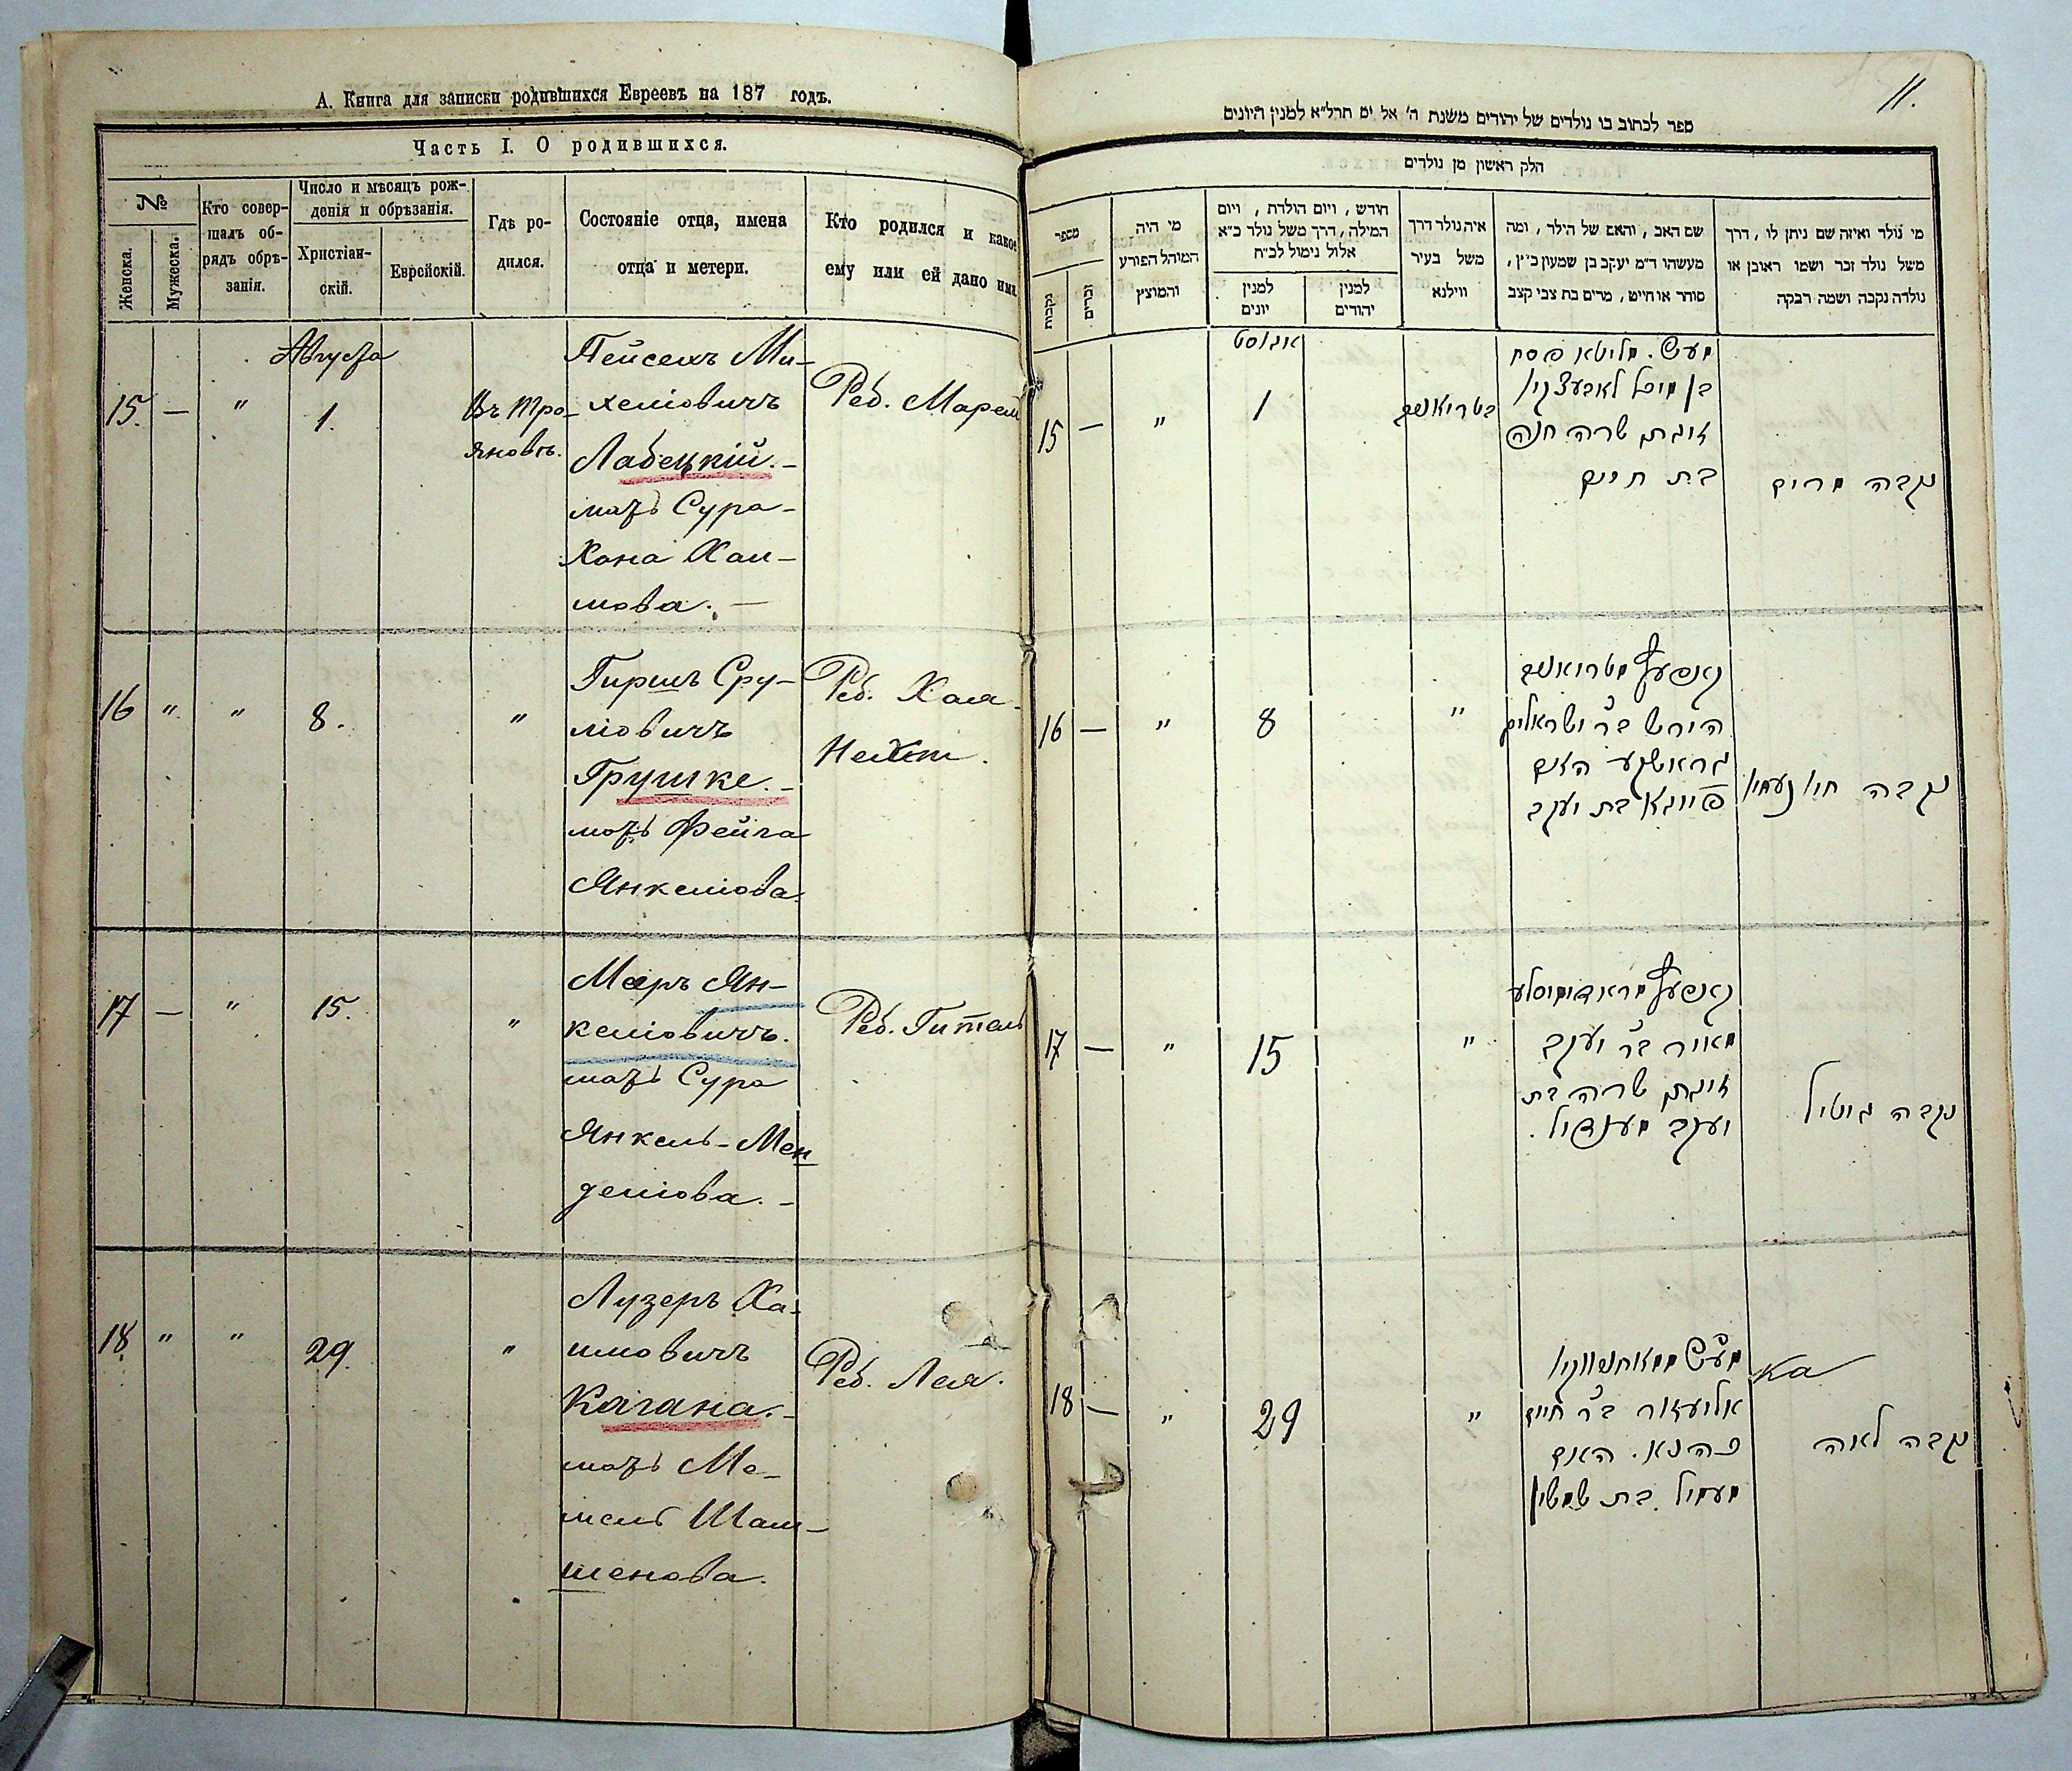 А. Книга для записки родившихся Евреевъ на 187 годъ.
Часть I. О родившихся.
№
Женска.
Мужеска.
Кто совер-
шалъ об-
рядъ обрѣ-
занія.
Число и мѣсяцъ рож-
денія и обрѣзанія.
Христіан-
скій.
Еврейскій.
Гдѣ ро-
дился.
Состояніе отца, имена
отца и метери.
Кто родился и какое
ему или ей дано имя.
Августа
15. — " 1.
Въ Тро-
яновѣ.
Пейсехъ Ми-
хеліовичъ
Лабецкій. -
мать Сура-
Хана Хаи-
мова. —
Реб. Марем
16 " " 8. "
Гиршъ Сру-
ліовичъ
Грушке. -
мать Фейга
Янкеліова.
Реб. Хая-
17 — " 15. "
Меръ Ян-
келіовичъ.
мать Сура
Янкель-Мен
деліова. -
Реб. Гитель
18. " " 29. "
Лузеръ Ха-
имовичъ
Кагана. -
мать Ме-
Шам-
шенова.
Реб. Лея.
11.
ספר לכתוב בו נולדים של יהודים משנת ה' אל ים תרל״א למנין היונים
הלק ראשון מן נולדים
מספר
נקבות
זכרים
מי היה
המוהל הפורע
והמוצץ
חודש, ויום הולדת, ויום
המילה, דרך משל נולד כ״א
אלול נימול לכ״ח
למנין
יונים
למנין
יהודים
איה נולד דרך
משל בעיר
ווילנא
שם האב, והאם של הילד, ומה
מעשהו ד״מ יעקב בן שמעון כ״ץ,
סוהר או חייט, מרים בת צבי קצב
מי נולד ואיזה שם ניתן לו, דרך
משל נולד זכר ושמו ראובן או
נולדה נקבה ושמה רבקה
אוגוסט
15 — " 1
בטריאנאוו
פסח
בן מיכל לאבעצקי
זוגתו שרה חנה
בת חיים
נקבה מרים
16 — " 8 "
הירש ב״ר ישראליק
גראשקע האם
פייגא בת יעקב
נקבה חי׳ נעחי׳
17 — " 15 "
מאיר ב״ר יעקב
זוגתו שרה בת
יעקב מענדיל.
נקבה גיטיל
18 — " 29 "
אליעזר ב״ר חיים
כהנא. האם
בת שמשון
נקבה לאה